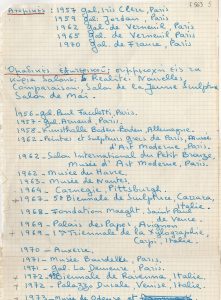 1957 Gal. Iris Clert, Paris
1959 Gal. Jordan, Paris
1962 Gal. de Verneuil Paris
1965 Gal. de Verneuil Paris
1970 Gal. de France, Paris
συμμετοχή στα
κύρια Salons: Réalités Nouvelles,
Comparaisons, Salon de la Jeune Sculpture
Salon de Mai.
1956 - Gal. Paul Facchetti, Paris.
1957 - Gal. Arnaud, Paris.
1958 - Kunsthalle Baden Baden Allemagne.
1962 - Peintres et Sculpteurs grecs de Paris, Musée
d'Art Moderne, Paris.
1962 - Salon International du Petit Bronze,
Musée d'Art Moderne, Paris.
1962 - Musée du Havre.
1963 - Musée de Nantes.
1964 - Carnegie, Pittsburgh.
1967 - 5e Biennale de Sculpture, Carrara,
Italie.
1968 - Fondation Maeght, Saint Paul
de Vence
1969 - Palais des Papes, Avignon
1969 - Triennale de la Xylographie,
Carpi, Italie.
1970 - Auxerre.
1971 - Musée Bourdelle, Paris.
1971 - Gal. La Demeure, Paris.
1972 - Biennale de Ravenne, Italie.
1972 - Palazzo Ducale, Venise, Italie.
1973 - Musée de Odense et